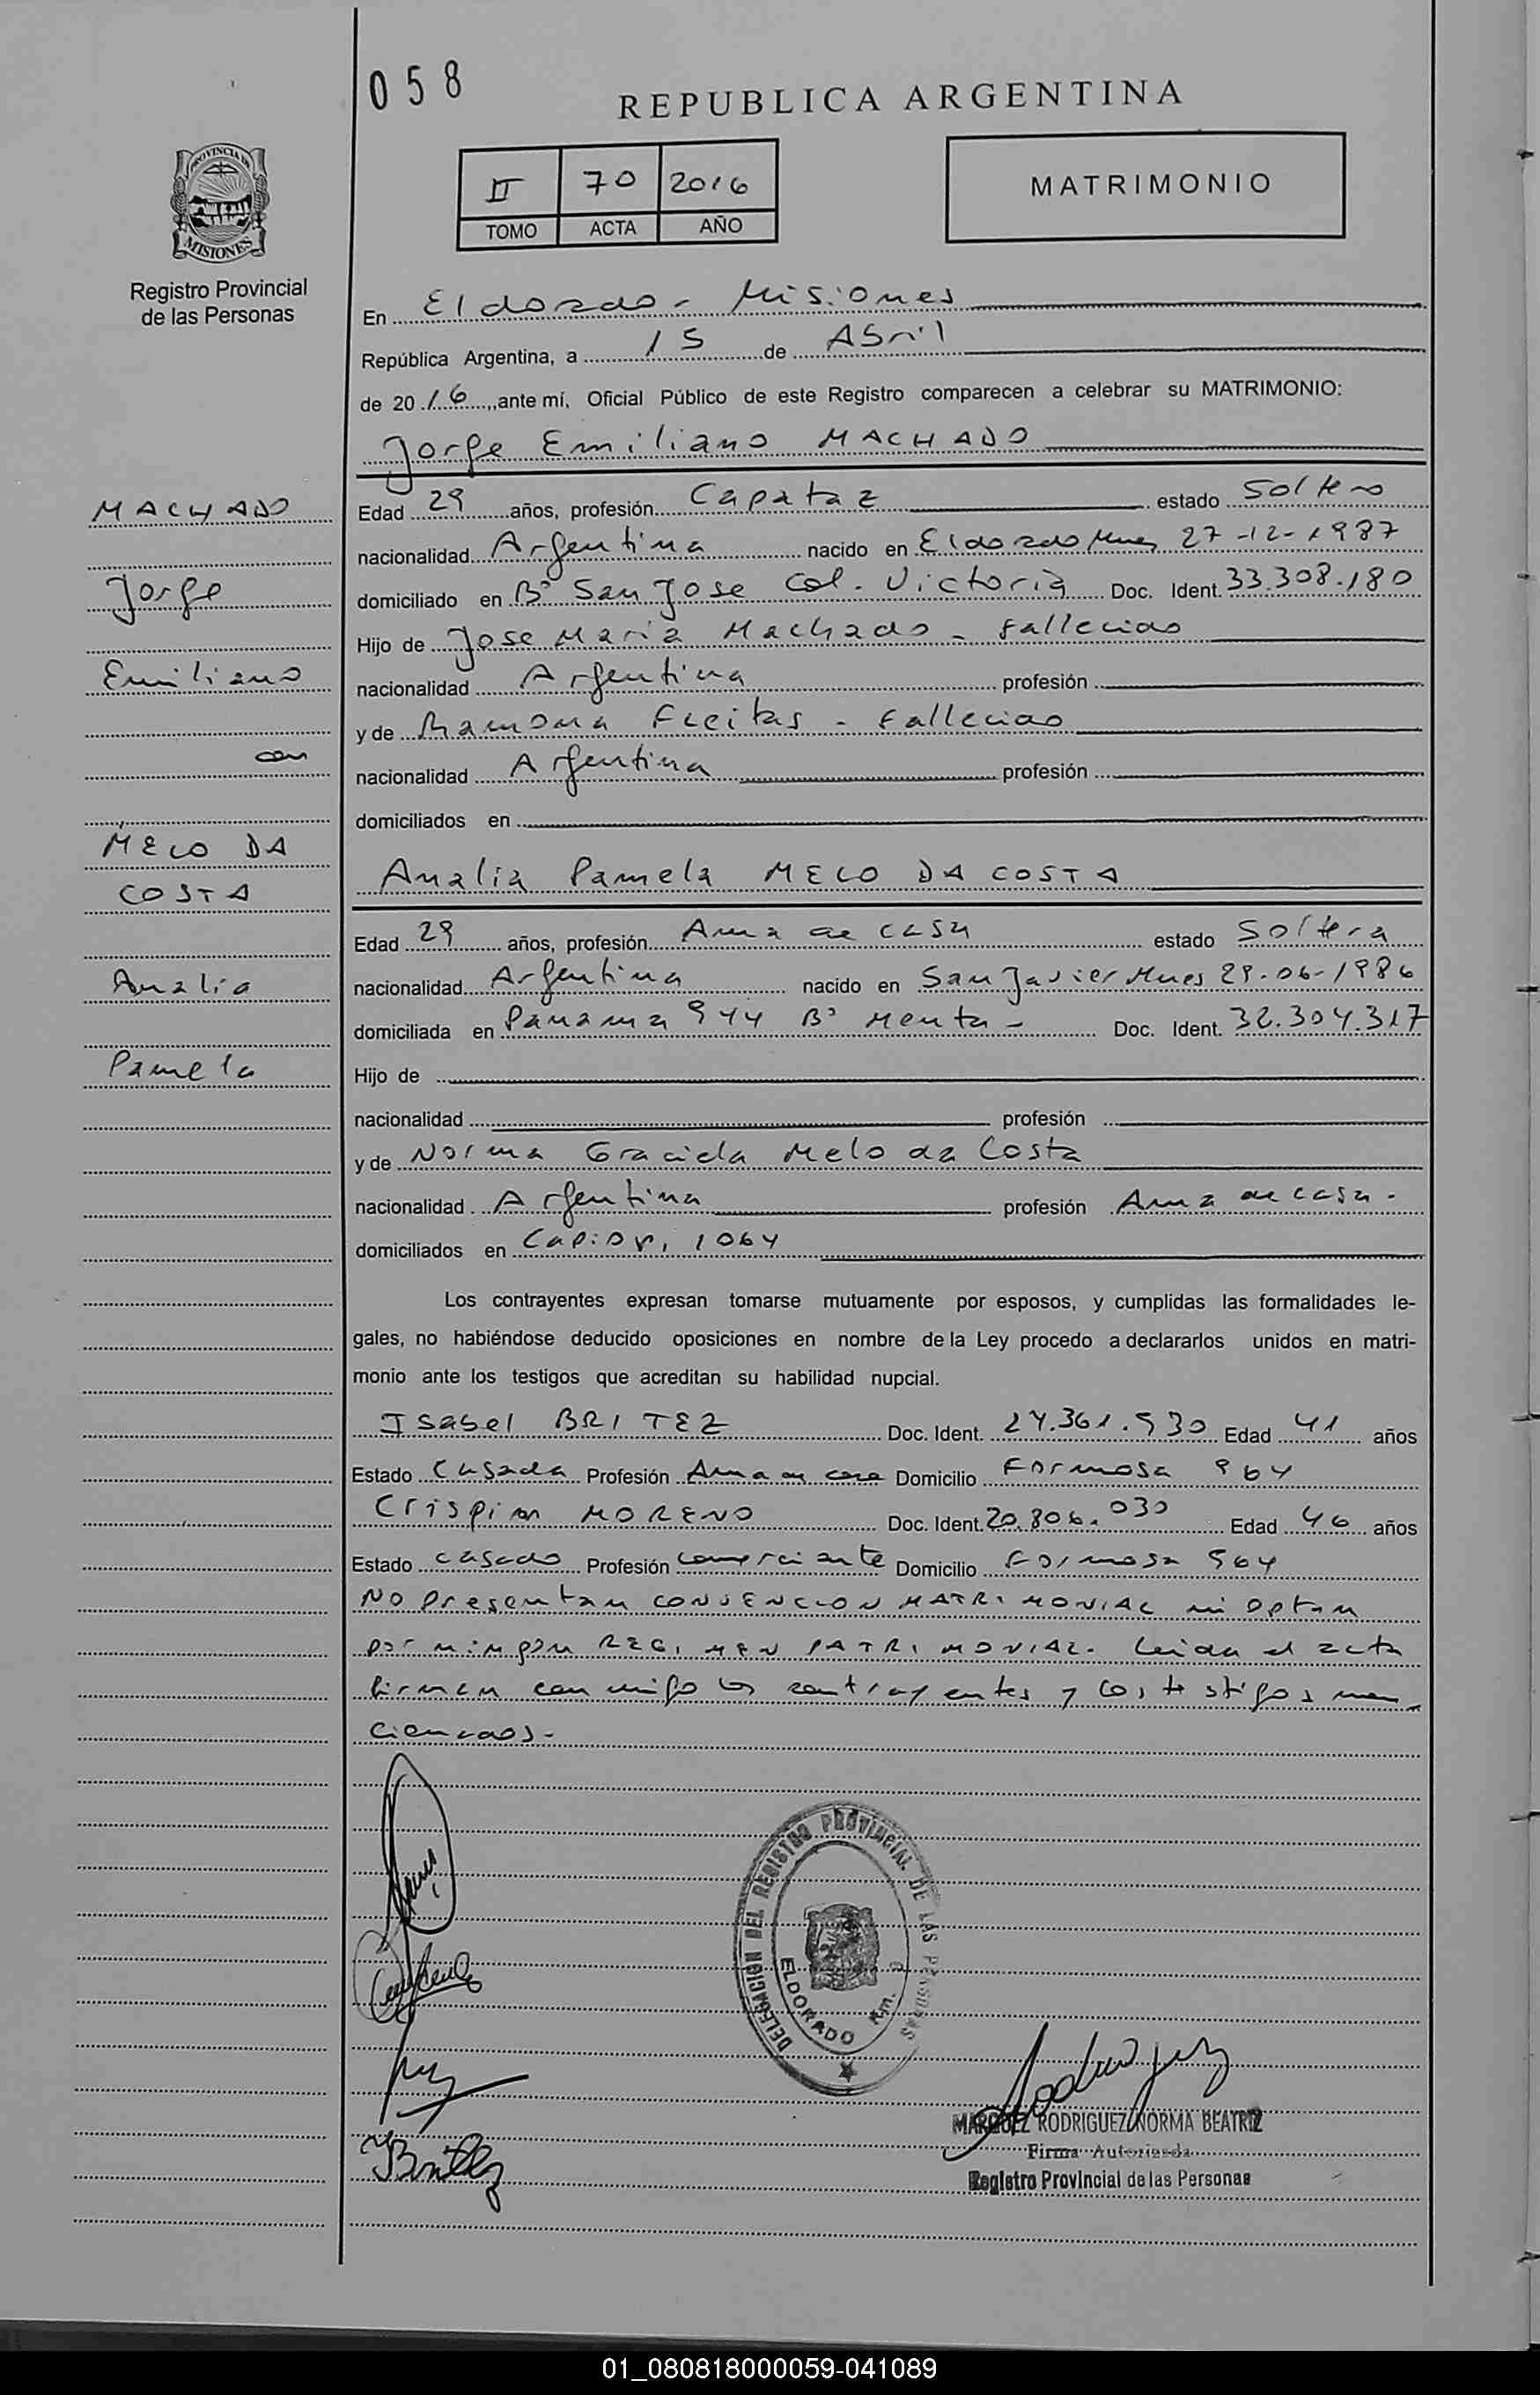 058
REPUBLICA ARGENTINA
PROVINCIA DE
MISIONES
Registro Provincial
de las Personas
II 70 2016
TOMO ACTA AÑO
MATRIMONIO
En Eldorado - Misiones
República Argentina, a 15 de Abril
de 2016, ante mí, Oficial Público de este Registro comparecen a celebrar su MATRIMONIO:
Jorge Emiliano MACHADO
MACHADO
Jorge
Emiliano
con
MELO DA
COSTA
Analia
Pamela
Edad 29 años, profesión Capataz estado Soltero
nacionalidad Argentina nacido en Eldorado Mnes 27-12-1987
domiciliado en Bº San Jose Col. Victoria Doc. Ident. 33.308.180
Hijo de Jose Maria Machado - fallecido
nacionalidad Argentina profesión
y de Ramona Fleitas - Fallecido
nacionalidad Argentina profesión
domiciliados en
Analia Pamela MELO DA COSTA
Edad 29 años, profesión Ama de casa estado Soltera
nacionalidad Argentina nacido en San Javier Mnes 29-06-1986
domiciliada en Panama 944 Bº Menta - Doc. Ident. 32.304.317
Hijo de
nacionalidad profesión
y de Norma Graciela Melo da Costa
nacionalidad Argentina profesión Ama de casa -
domiciliados en Capiovi 1064
Los contrayentes expresan tomarse mutuamente por esposos, y cumplidas las formalidades le-
gales, no habiéndose deducido oposiciones en nombre de la Ley procedo a declararlos unidos en matri-
monio ante los testigos que acreditan su habilidad nupcial.
Isabel BRITEZ Doc. Ident. 24.361.530 Edad 41 años
Estado Casada Profesión Ama de casa Domicilio Formosa 964
Crispin MORENO Doc. Ident. 20.806.030 Edad 46 años
Estado casado Profesión comerciante Domicilio Formosa 964
No presentan CONVENCION MATRIMONIAL ni optan
por ningun REGIMEN PATRIMONIAL- Leida el acta
firman conmigo los contrayentes y los testigos men
cionados-
DELEGACION DEL REGISTRO PROVINCIAL DE LAS PERSONAS
ELDORADO Km.
MARQUEZ RODRIGUEZ NORMA BEATRIZ
Firma Autorizada
Registro Provincial de las Personas
01_080818000059-041089